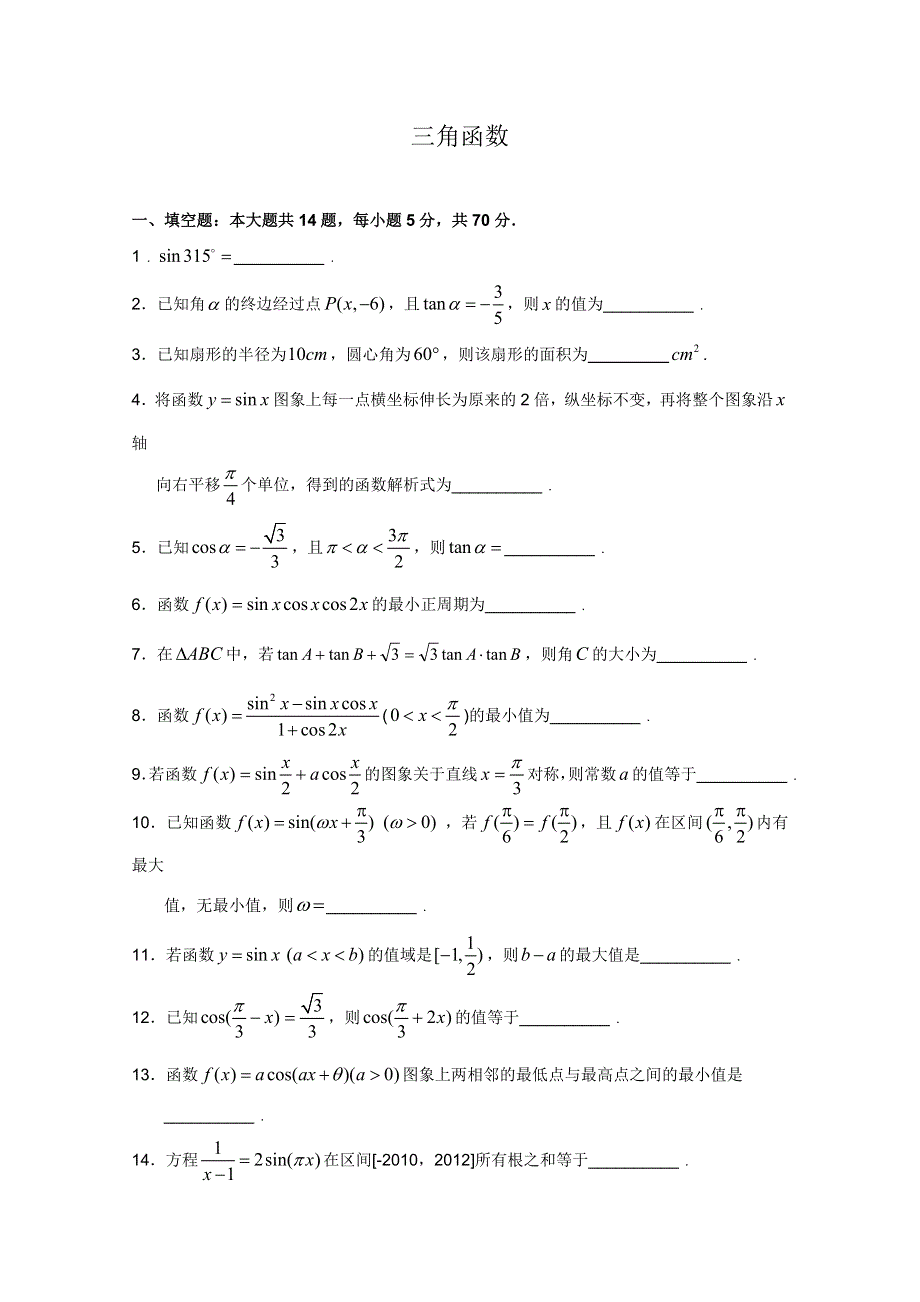 三角函数
一、填空题：本大题共14题，每小题5分，共70分．
1．$\sin 315^\circ=$__________．
2．已知角$\alpha$的终边经过点$P(x,-6)$，且$\tan\alpha=-\frac{3}{5}$，则$x$的值为__________．
3．已知扇形的半径为$10cm$，圆心角为$60°$，则该扇形的面积为_________$cm^2$．
4．将函数$y=\sin x$图象上每一点横坐标伸长为原来的2倍，纵坐标不变，再将整个图象沿$x$
轴
向右平移$\frac{\pi}{4}$个单位，得到的函数解析式为__________．
5．已知$\cos\alpha=-\frac{\sqrt{3}}{3}$，且$\pi<\alpha<\frac{3\pi}{2}$，则$\tan\alpha=$__________．
6．函数$f(x)=\sin x\cos x\cos 2x$的最小正周期为__________．
7．在$\Delta ABC$中，若$\tan A+\tan B+\sqrt{3}=\sqrt{3}\tan A\cdot\tan B$，则角$C$的大小为__________．
8．函数$f(x)=\frac{\sin^2 x-\sin x\cos x}{1+\cos 2x}$($0<x<\frac{\pi}{2}$)的最小值为__________．
9.若函数$f(x)=\sin\frac{x}{2}+a\cos\frac{x}{2}$的图象关于直线$x=\frac{\pi}{3}$对称,则常数$a$的值等于__________．
10．已知函数$f(x)=\sin(\omega x+\frac{\pi}{3})\ (\omega>0)$ ，若$f(\frac{\pi}{6})=f(\frac{\pi}{2})$，且$f(x)$在区间$(\frac{\pi}{6},\frac{\pi}{2})$内有
最大
值，无最小值，则$\omega=$__________．
11．若函数$y=\sin x\ (a<x<b)$的值域是$[-1,\frac{1}{2})$，则$b-a$的最大值是__________．
12．已知$\cos(\frac{\pi}{3}-x)=\frac{\sqrt{3}}{3}$，则$\cos(\frac{\pi}{3}+2x)$的值等于__________．
13．函数$f(x)=a\cos(ax+\theta)(a>0)$图象上两相邻的最低点与最高点之间的最小值是
__________．
14．方程$\frac{1}{x-1}=2\sin(\pi x)$在区间[-2010，2012]所有根之和等于__________．